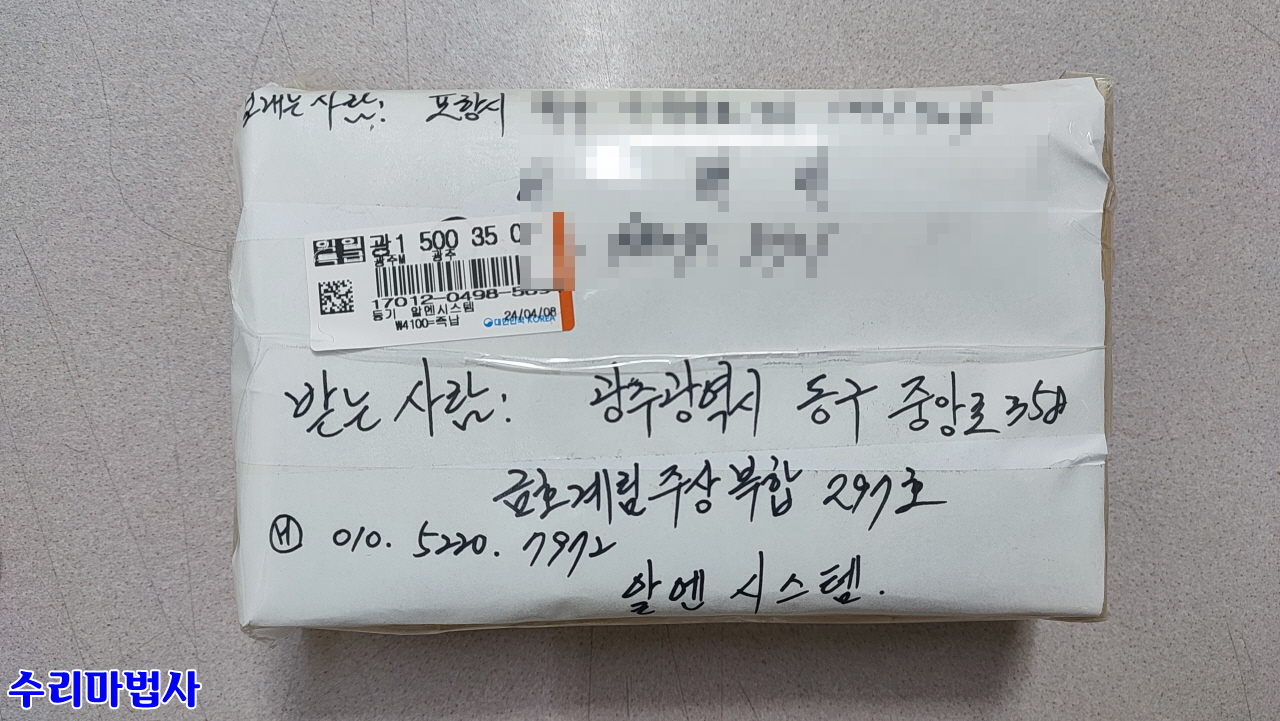 보내는 사람: 포항시
익일 광1 500 35 0
광주M 광주
17012-0498-5
등기 알엔시스템
₩4100=즉납 24/04/08
대한민국 KOREA
받는 사람: 광주광역시 동구 중앙로 358
금호계림주상복합 297호
H 010. 5220. 7972
알엔 시스템.
수리마법사